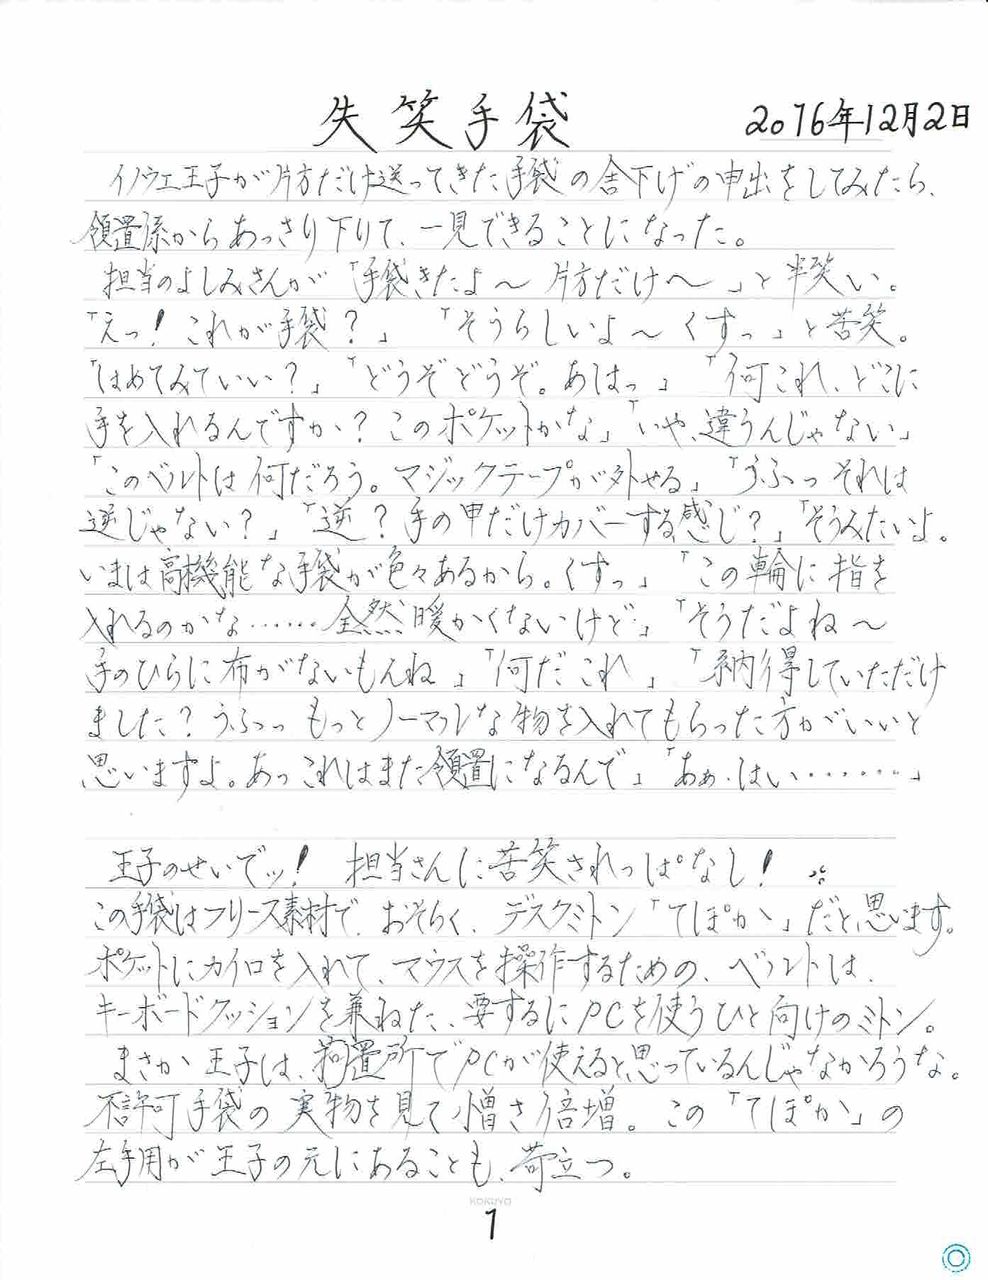 失笑手袋
2016年12月2日
イノウエ王子が片方だけ送ってきた手袋の舎下げの申出をしてみたら、
領置係からあっさり下りて、一見できることになった。
担当のよしみさんが「手袋きたよ～片方だけ～」と半笑い。
「えっ！これが手袋？」「そうらしいよ～くすっ」と苦笑。
「はめてみていい？」「どうぞどうぞ。あはっ」「何これ、どこに
手を入れるんですか？このポケットかな」「いや、違うんじゃない」
「このベルトは何だろう。マジックテープが外せる」「うふっそれは
逆じゃない？」「逆？手の甲だけカバーする感じ？」「そうみたいよ。
いまは高機能な手袋が色々あるから。くすっ」「この輪に指を
入れるのかな……全然暖かくないけど」「そうだよね～
手のひらに布がないもんね」「何だこれ」「納得していただけ
ました？うふっっもっとノーマルな物を入れてもらった方がいいと
思いますよ。あっこれはまた領置になるんで」「あぁ、はい………」
王子のせいでッ！担当さんに苦笑されっぱなし！
この手袋はフリース素材で、おそらく、デスクミトン「てぽか」だと思います。
ポケットにカイロを入れて、マウスを操作するための、ベルトは、
キーボードクッションを兼ねた、要するにPCを使うひと向けのミトン。
まさか王子は、拘置所でPCが使えると思っているんじゃなかろうな。
不許可手袋の実物を見て憎さ倍増。この「てぽか」の
左手用が王子の元にあることも、苛立つ。
KOKUYO
1